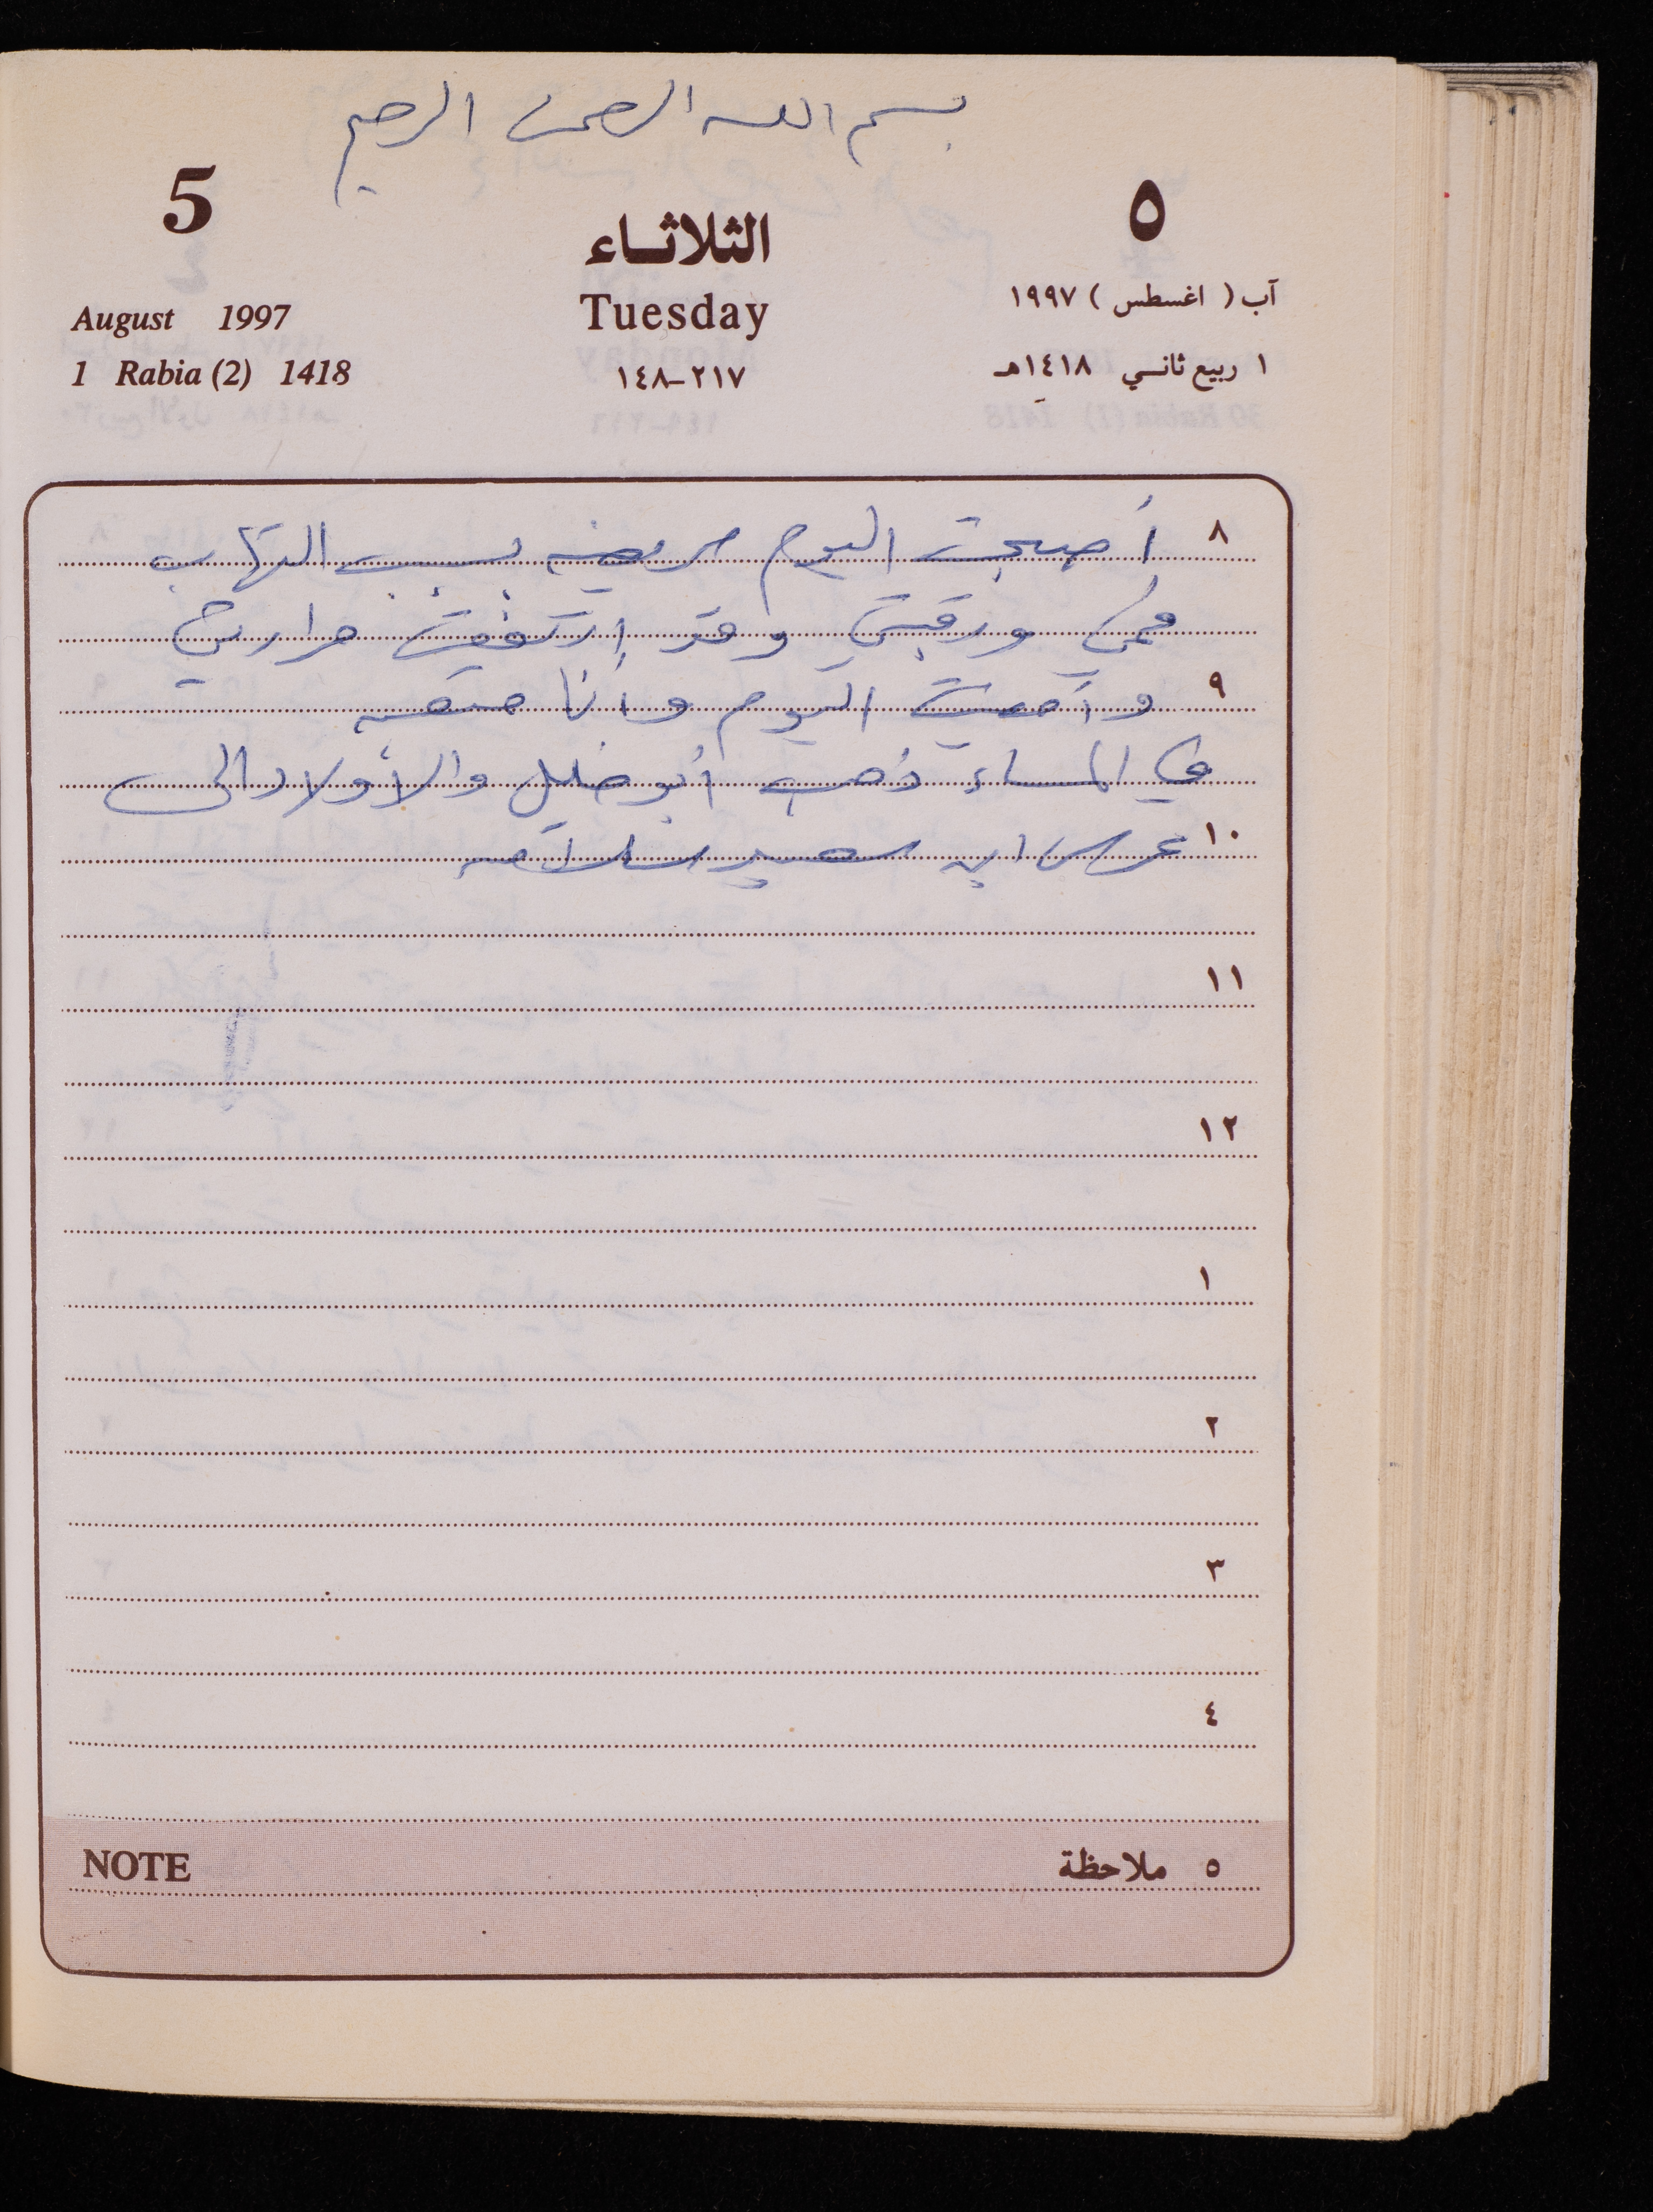 بسم الله الرحمن الرحيم
5
الثلاثاء
٥
August 1997
Tuesday
آب ( اغسطس ) ١٩٩٧
1 Rabia (2) 1418
٢١٧-١٤٨
١ ربيع ثاني ١٤١٨هـ
٨ أصبحت اليوم مريضه بسبب التهاب
فمي ورقبتي وقد إرتفعت حرارتي
٩ وأمضيت اليوم وأنا متعبه
في المساء ذهب أبو خليل والأولاد الى
١٠ عرس ابن سعيد سلامه
١١
١٢
١
٢
٣
٤
NOTE ٥ ملاحظة